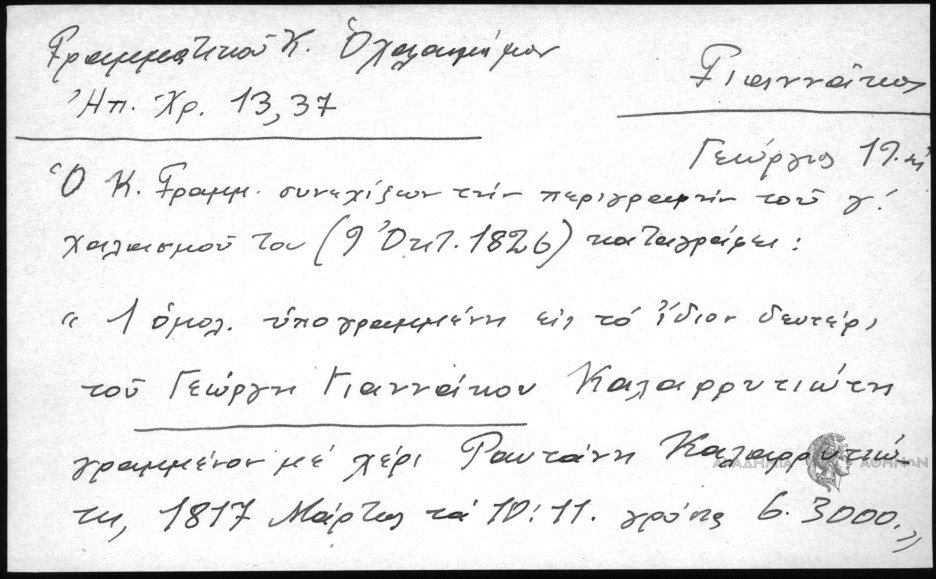 Γραμματικοῦ Κ. Ὁ χαλασμὸς
Ἠπ. Χρ. 13,37
Γιαννάκος
Γεώργιος 19.
Ὁ Κ. Γραμμ. συνεχίζων τὴν περιγραφὴν τοῦ γ'.
χαλασμοῦ του (9 Ὀκτ. 1826) καταγράφει:
" 1 ὁμολ. ὑπογραμμένη εἰς τὸ ἴδιον δευτέρι
τοῦ Γεώργη Γιαννάκου Καλαρρυτιώτη
γραμμένον μέ χέρι Ραυτάνη Καλαρρυτιώ-
τη, 1817 Μάρτιος τά 10:11. γρόσις 6. 3000."
ΑΚΑΔΗΜΙΑ ΑΘΗΝΩΝ